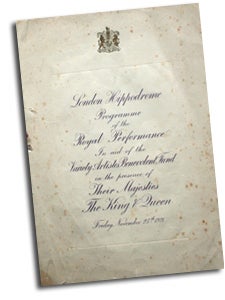 London Hippodrome
Programme
of the
Royal Performance
In aid of the
Variety Artistes Benevolent Fund
in the presence of
Their Majesties
The King & Queen
Friday, November